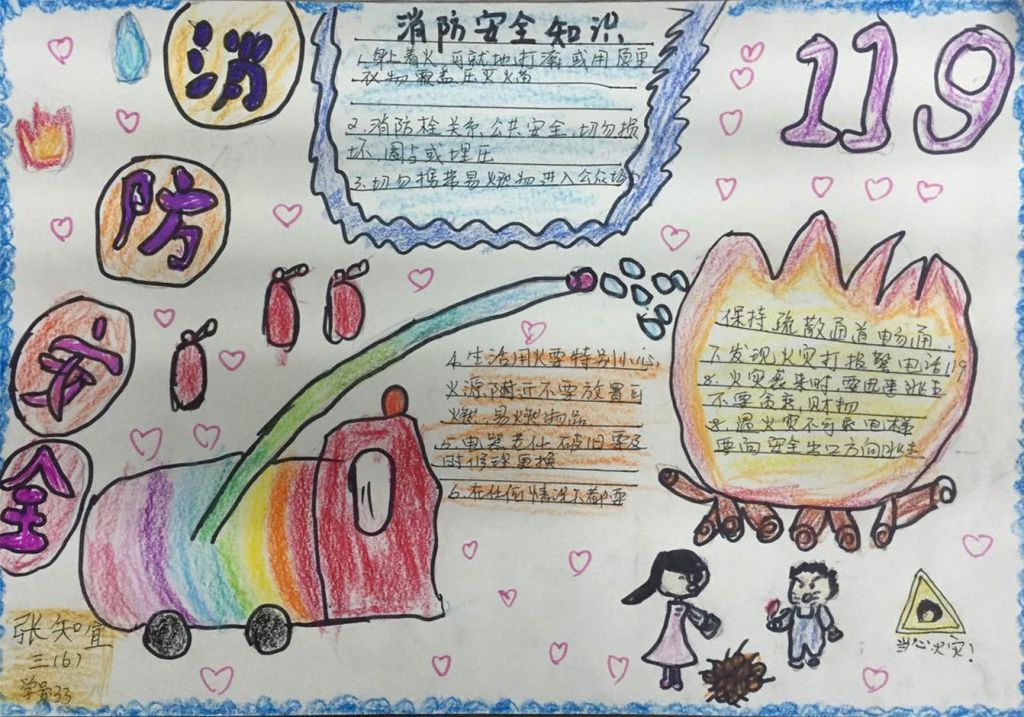 消
防
安
全
消防安全知识
1.身上着火,可就地打滚,或用厚重
衣物覆盖压灭火苗
2.消防栓关系公共安全,切勿损
坏、圈占或埋压
3.切勿携带易燃物进入公众场
119
4.生活用火要特别小心,
火源附近不要放置可
燃、易燃物品
5.电器老化、破旧要及
时修理更换
6.在任何情况下都要
保持疏散通道畅通.
7.发现火灾打报警电话119
8.火灾袭来时,要迅速逃生
不要贪恋,财物
8.遇火灾不可乘电梯
要向安全出口方向逃生
当心火灾!
张知宜
三(6)
学号33